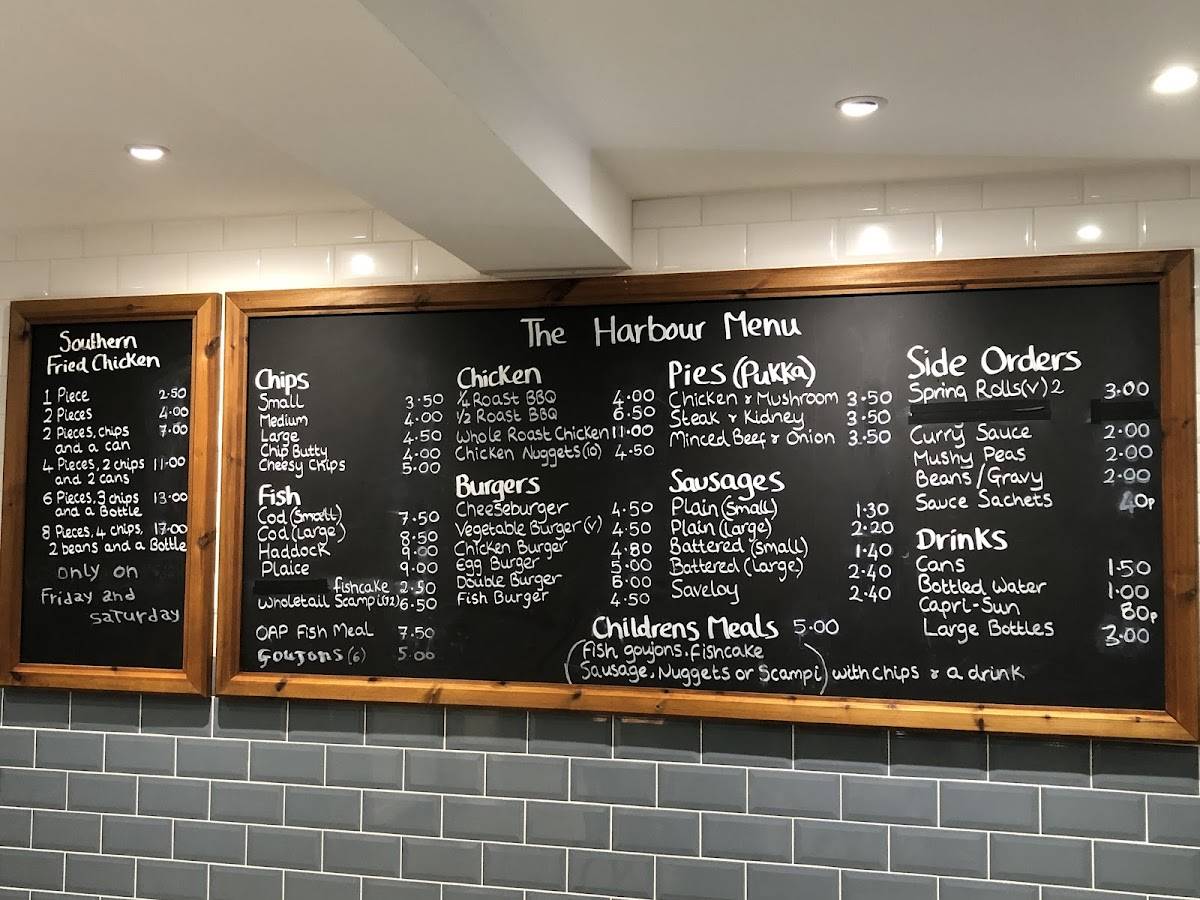 Southern
Fried Chicken
1 Piece 2.50
2 Pieces 4.00
2 Pieces, chips 7.00
and a can
4 Pieces, 2 chips 11.00
and 2 cans
6 Pieces, 3 chips 13.00
and a Bottle
8 Pieces, 4 chips, 17.00
2 beans and a Bottle
only on
Friday and
saturday
The Harbour Menu
Chips
Small 3.50
Medium 4.00
Large 4.50
Chip Butty 4.00
Cheesy Chips 5.00
Fish
Cod (Small) 7.50
Cod (Large) 8.50
Haddock 9.00
Plaice 9.00
fishcake 2.50
Wholetail Scampi (12) 6.50
OAP Fish Meal 7.50
Goujons (6) 5.00
Chicken
1/4 Roast BBQ 4.00
1/2 Roast BBQ 6.50
Whole Roast Chicken 11.00
Chicken Nuggets (10) 4.50
Burgers
Cheeseburger 4.50
Vegetable Burger (v) 4.50
Chicken Burger 4.80
Egg Burger 5.00
Double Burger 6.00
Fish Burger 4.50
Pies (Pukka)
Chicken & Mushroom 3.50
Steak & Kidney 3.50
Minced Beef & Onion 3.50
Sausages
Plain (Small) 1.30
Plain (Large) 2.20
Battered (Small) 1.40
Battered (Large) 2.40
Saveloy 2.40
Childrens Meals 5.00
(Fish goujons, fishcake
Sausage, Nuggets or Scampi) with chips & a drink
Side Orders
Spring Rolls (v) 2 3.00
Curry Sauce 2.00
Mushy Peas 2.00
Beans/Gravy 2.00
Sauce Sachets 40p
Drinks
Cans 1.50
Bottled Water 1.00
Capri-Sun 80p
Large Bottles 3.00